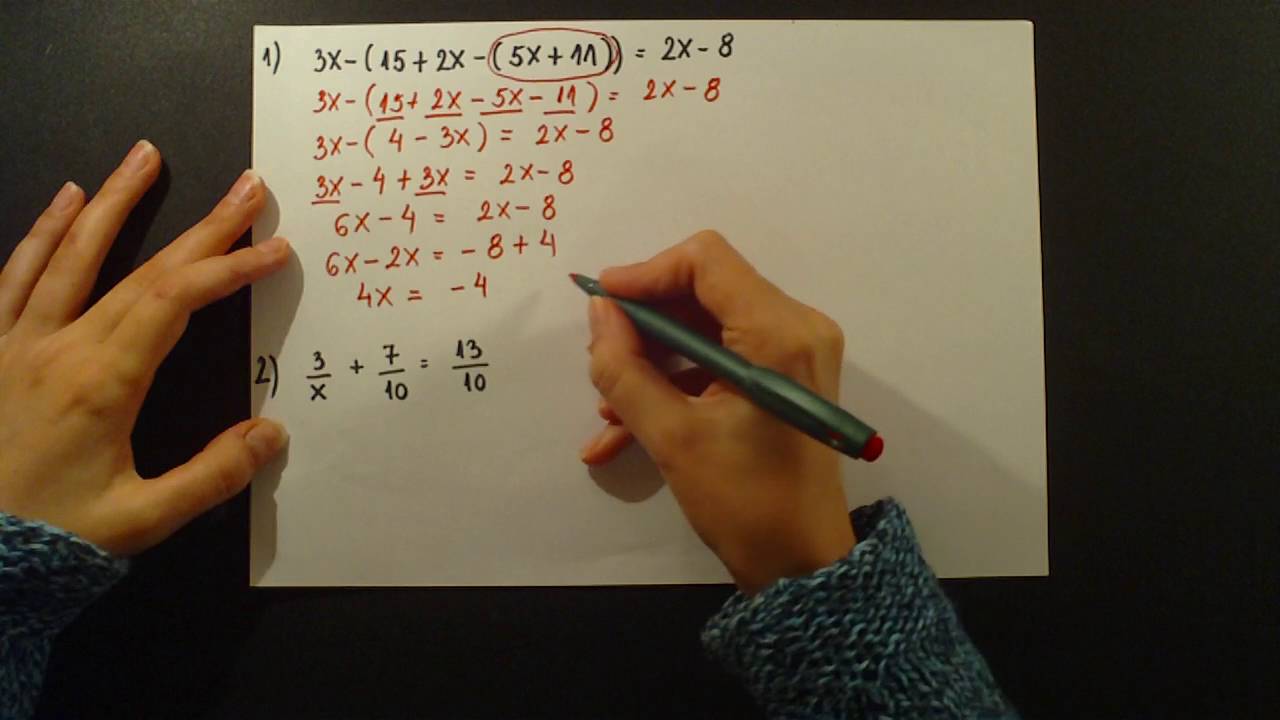 1) 3x-(15+2x-(5x+11)) = 2x-8
3x-(15+2x-5x-11) = 2x-8
3x-(4-3x) = 2x-8
3x-4+3x = 2x-8
6x-4 = 2x-8
6x-2x = -8+4
4x = -4
2) 3/x + 7/10 = 13/10